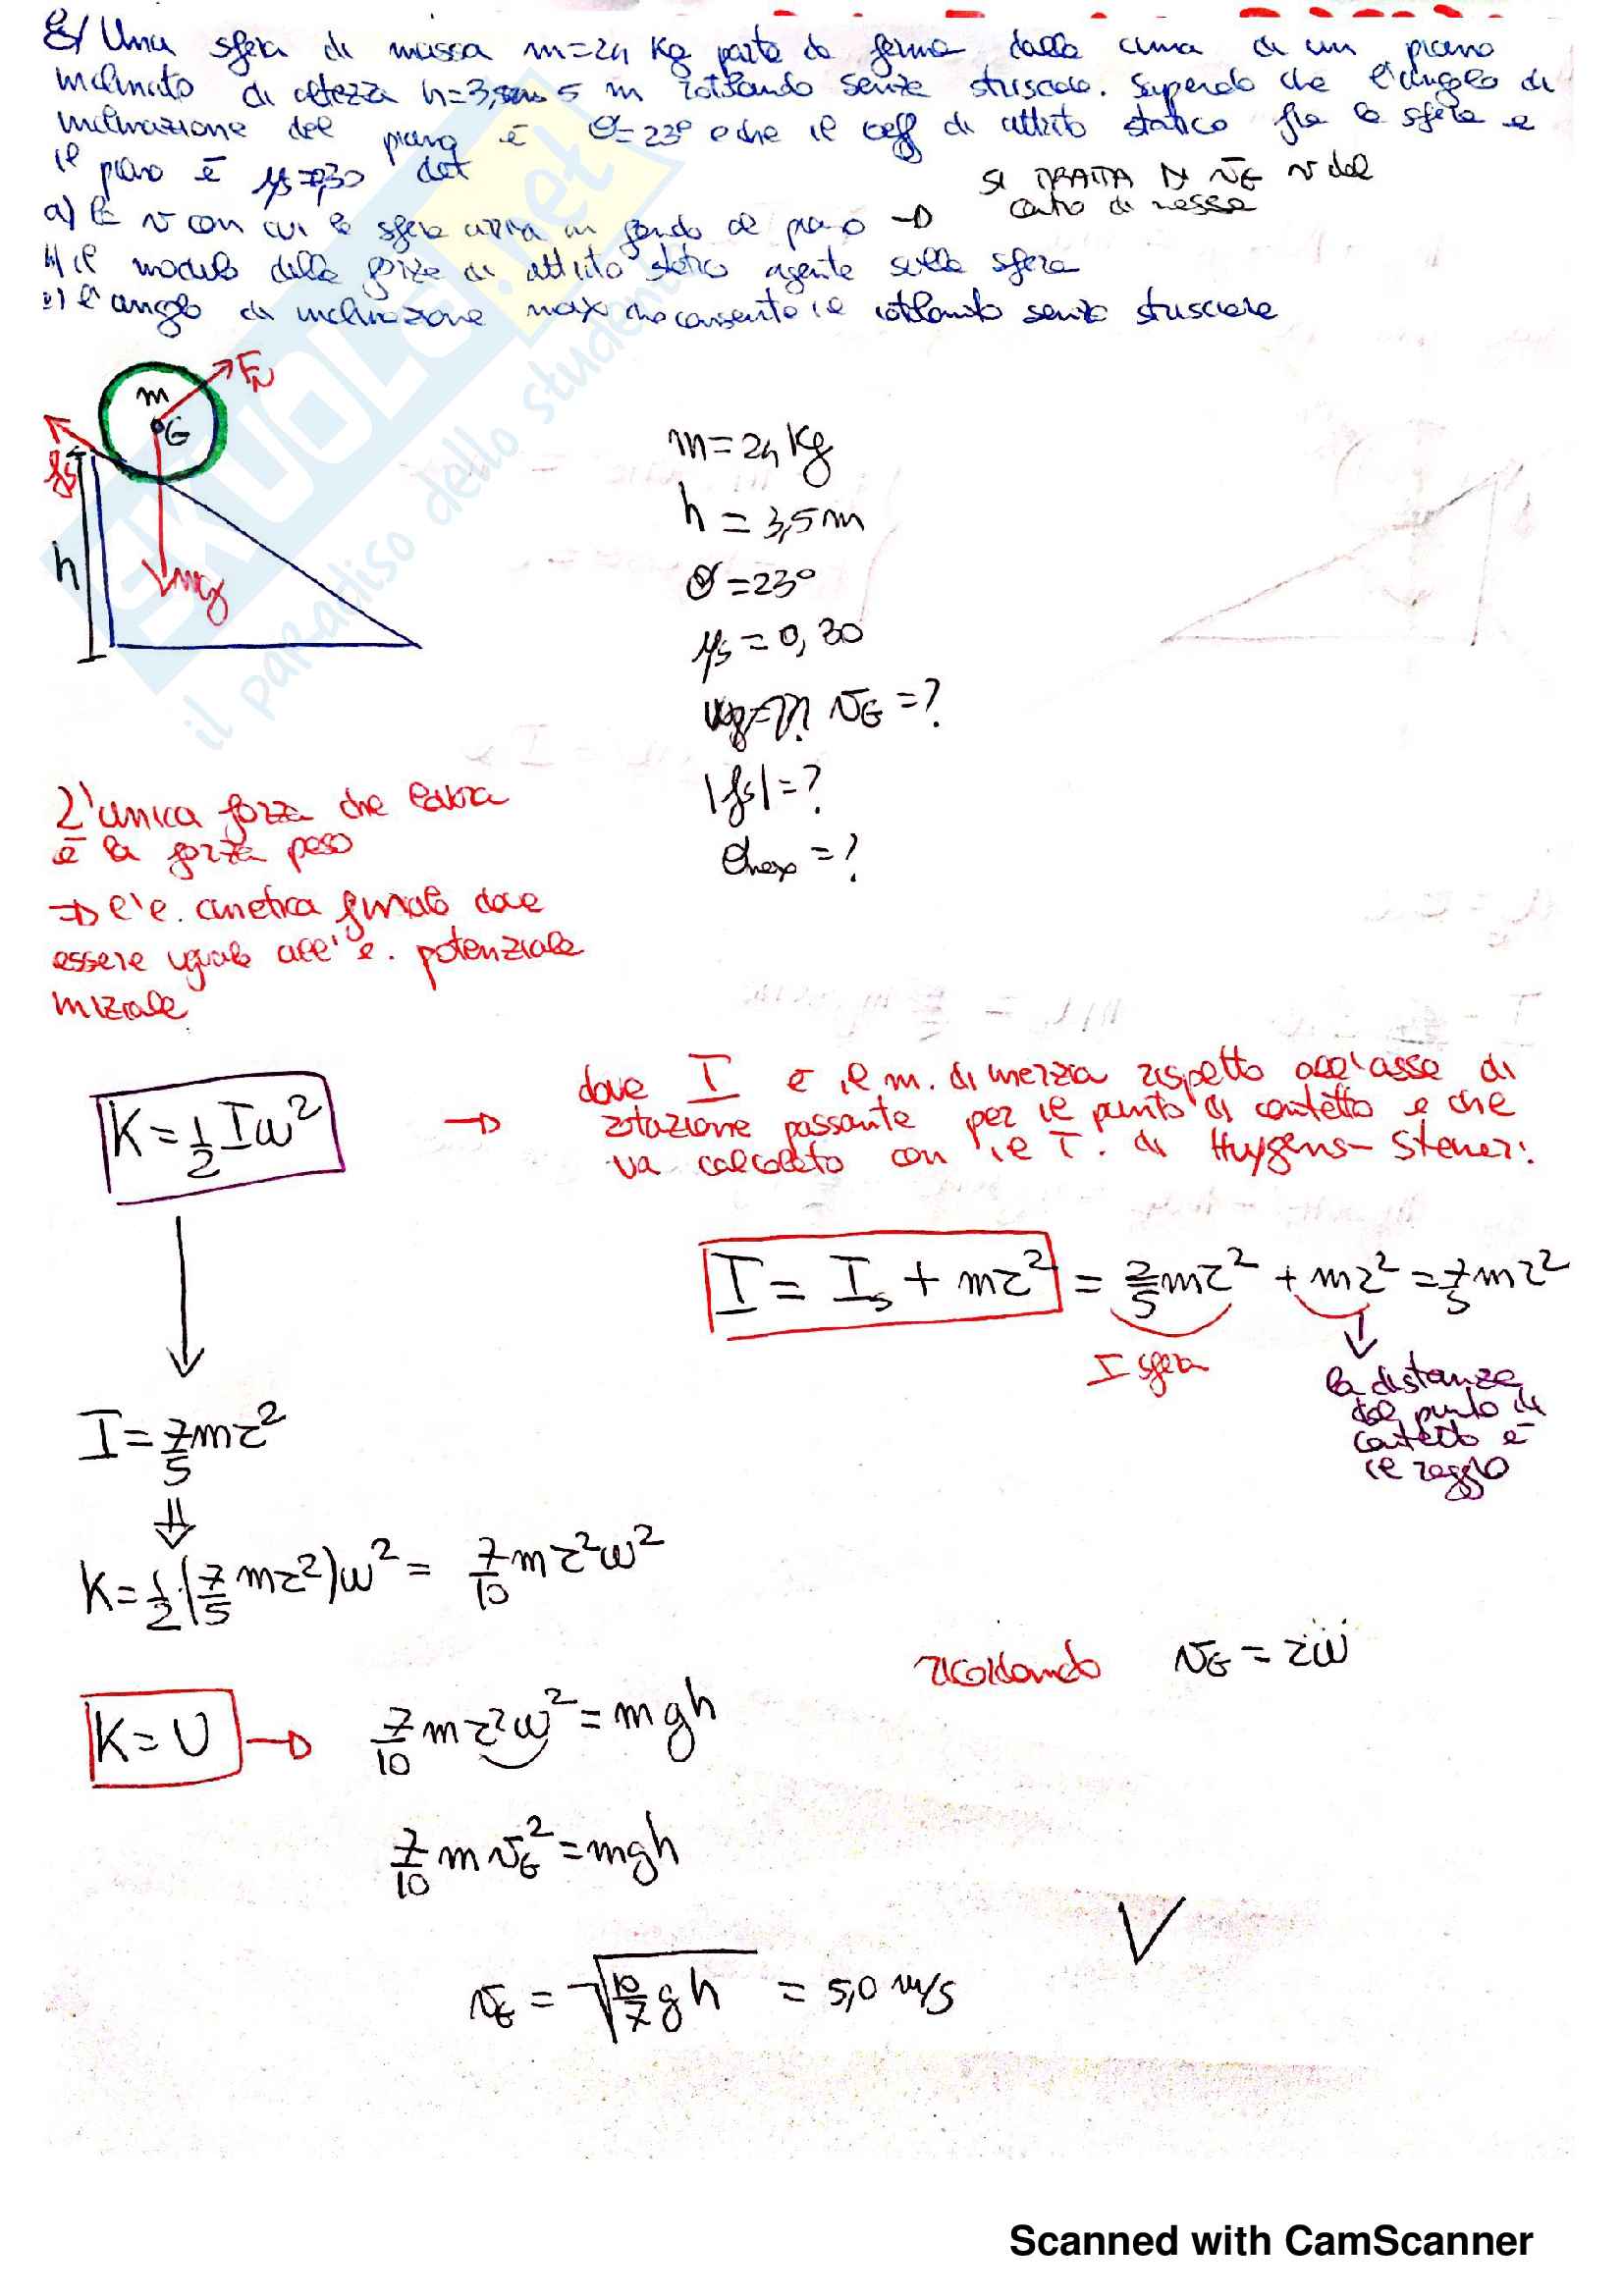 Es/ Una sfera di massa m=24 Kg parte da ferma dalla cima di un piano
inclinato di altezza h=3,5 m rotolando senza strisciare. Sapendo che l'angolo di
inclinazione del piano è θ=23° e che il coeff di attrito statico fra la sfera e
il piano è μs=0,30 det
SI TRATTA DI vG v del
centro di massa
a) la v con cui la sfera arriva in fondo al piano →
b) il modulo della forza di attrito statico agente sulla sfera
c) l'angolo di inclinazione max che consente il rotolando senza strisciare
SKUOLA.net
il paradiso dello studente
m
G
FN
fs
h
mg
m=24 Kg
h=3,5m
θ=23°
μs=0,30
vG=?
|fs|=?
θmax=?
L'unica forza che lavora
è la forza peso
⇒ l'e. cinetica finale deve
essere uguale all'e. potenziale
iniziale
K=1/2 Iω² →
dove I è il m. di inerzia rispetto all'asse di
rotazione passante per il punto di contatto e che
va calcolato con il T. di Huygens-Steiner:
I = Is + mr² = 2/5 mr² + mr² = 7/5 mr²
I sfera
la distanza
dal punto di
contatto è
il raggio
I=7/5 mr²
⇓
K=1/2 (7/5 mr²)ω² = 7/10 mr²ω²
ricordando vG=rω
K=U → 7/10 mr²ω²=mgh
7/10 mvG²=mgh
vG=√(10/7 gh) = 5,0 m/s
V
Scanned with CamScanner